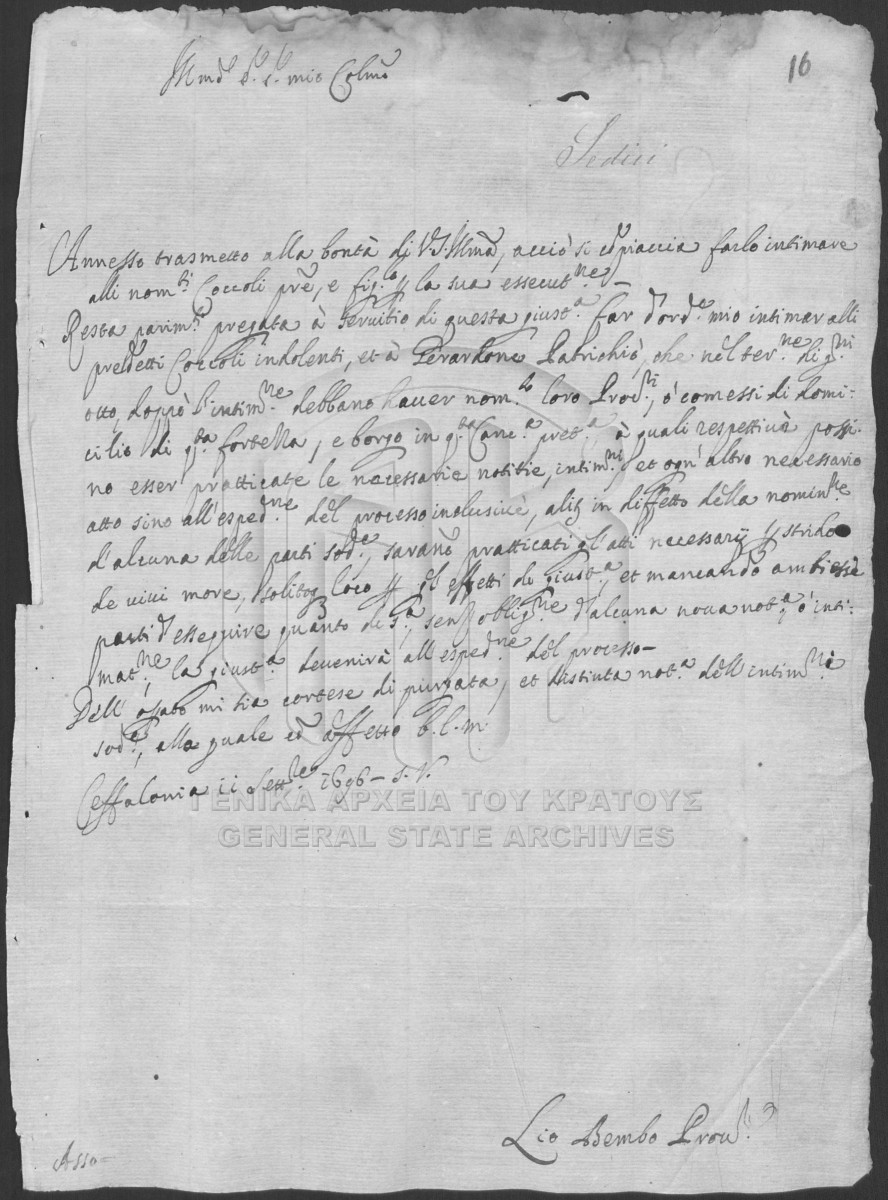 Illmo Sr. Sr. mio Colmo
16
Sedici
Annesso trasmetto alla bontà di V.S. Illma, acciò si compiaccia farlo intimare
alli nomti Coccoli pre, e figlo p la sua essecutne —
Resta parimti pregata à servitio di questa giusta far d'orde mio intimar alli
predetti Coccoli indolenti, et à Gerardone Patrichiò, che nel terne di gni
otto, doppò l'intimne debbano haver nomto loro Procri, ò comessi di domi-
cilio di qta fortezza, e borgo in qta Canca preta, à quali respettive possi-
no esser pratticate le necessarie notitie, intimni, et ogn'altro necessario
atto sino all'espedne del processo inclusive, alias in diffetto della nominne
d'alcuna delle parti sode, sarano pratticati gl'atti necessarij p strido
de vivi more, solitoq loco p gl'effetti di giusta, et mancando ambe esse
parti d'esseguire quanto di sa, senza obligne d'alcuna nova nota, ò inti-
matne, la giusta devenirà all'espedne del processo —
Dell' mi sia cortese di piegata, et distinta nota dell'intimni
sode, alla quale con affetto b. l. m.
Ceffalonia 11 Settre 1696 — S.V.
ΓΕΝΙΚΑ ΑΡΧΕΙΑ ΤΟΥ ΚΡΑΤΟΥΣ
GENERAL STATE ARCHIVES
Lio Bembo Provr
Asso —